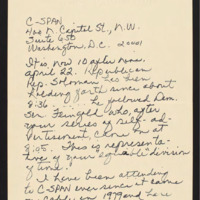 C-SPAN
400 N. Capitol St., N.W.
Suite 650
Washington, D.C. 20001
It is now 10 after nine,
April 22. Republican
Rep. Solomon has been
holding forth since about
8:36. He followed Dem.
Sen. Feingold who, after
your series of self-ad-
vertisement came on at
8:05. This is representa-
tive of your "equitable" division
of time?
I have been attending
to C-SPAN ever since it came
on Cable in 1979 and have